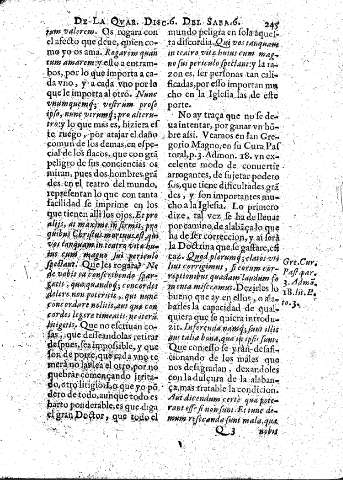 DE LA QVAR. DISC. 6. DEL SABA. 6. 245
tum valorem. Os rogara con
el afecto que deue, quien co-
mo yo os ama. Rogarim quan
tum amarem: y ello a entram-
bos, por lo que importa a ca-
da vno, y a cada vno por lo
que le importa al otro. Nunc
vnumquemq; vestrum prose
ipso, nunc virumq; pro alteru-
tro: y lo que mas es, hiziera es
te ruego, por atajar el daño
comun de los demas, en espe-
cial de los flacos, que con grã
peligro de sus conciencias os
miran, pues dos hombres grã
des en el teatro del mundo,
representan lo que con tanta
facilidad se imprime en los
que tienen alli los ojos. Et pro
alijs, & maxime infirmis, pro
quibus Christus mortuus est, qui
vos tanquam in teatro vitæ hu-
ius cum magno sui periculo
spectant. Que les rogarà? Ne
de vobis ea conscribendo spar-
gatis, quæ quandoq; concordes
delere non poteritis, qui nunc
concordare nolitis, aut quæ con
cordes legere timeatis ne iterũ
litigetis. Que no escriuan co-
sas, que desseandolas retirar
despues, sea impossible, y que
son de porte, que cada vno te-
merà no las lea el otro, por no
quebrar començando irrita-
do, otro litigio. Lo que yo põ
dero de todo, aunque todo es
harto ponderable, es que diga
el gran Doctor, que todo el
mundo peligra en sola aques-
ta discordia. Qui vos tanquam
in teatro vitæ huius cum mag-
no sui periculo spectant: y la ra-
zon es, ser personas tan cali-
ficadas, por esso importan mu
cho en la Iglesia las de este
porte.
No ay traça que no se de-
ua intentar, por ganar vn hõm-
bre assi. Veamos en san Gre-
gorio Magno, en su Cura Pas
toral, p. 3. Admon. 18. vn ex-
celente modo de conuertir
arrogantes, de sujetar podero
sos, que tiene dificultades grã
des, y son importantes mu-
cho a la Iglesia. Lo primero
dize, tal vez se ha de lleuar
por camino, de alabãça lo que
ha de ser correccion, y ai serà
la Doctrina que se gastare, efi
caz. Quod plerumq; elatos vti
lius corrigimus, si eorum cor-
reptionibus quædam laudum fo
menta misceamus. Dezirles lo
bueno que ay en ellos, o ala-
barles la capacidad de qual-
quiera que se quiera introdu-
zir. Inferenda namq; sunt illis
aut talia bona, que in ipsis sunt:
Que con esso se yràn desafi-
cionando de los males que
nos desagradan, dexandoles
con la dulçura de la alaban-
ça, mas tratable la condicion.
Aut dicendum certe quæ pote-
rant esse si non sunt. Et tunc de-
mum resecanda sunt mala, quæ
Gre. Cur.
Pas. par.
3. Admõ.
18. lit. P.
to. 3.
Q 3 nobis